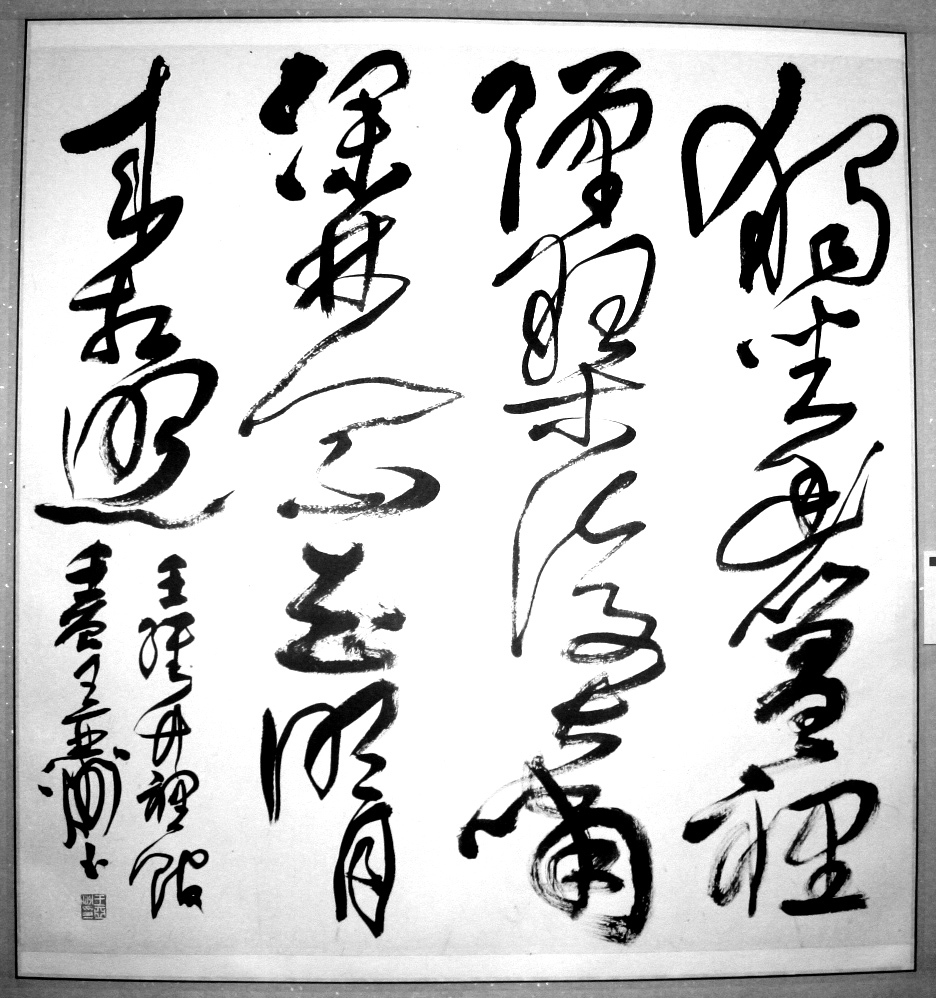 獨坐幽篁裡
彈琴復長嘯
深林人不知明月
來相照
王維竹裡館
王亞書